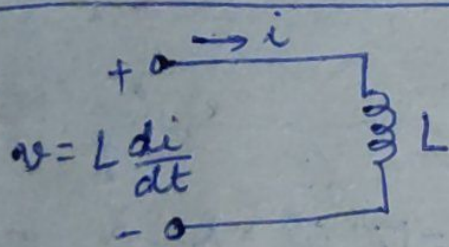 → i
+
v = L di/dt
L
-